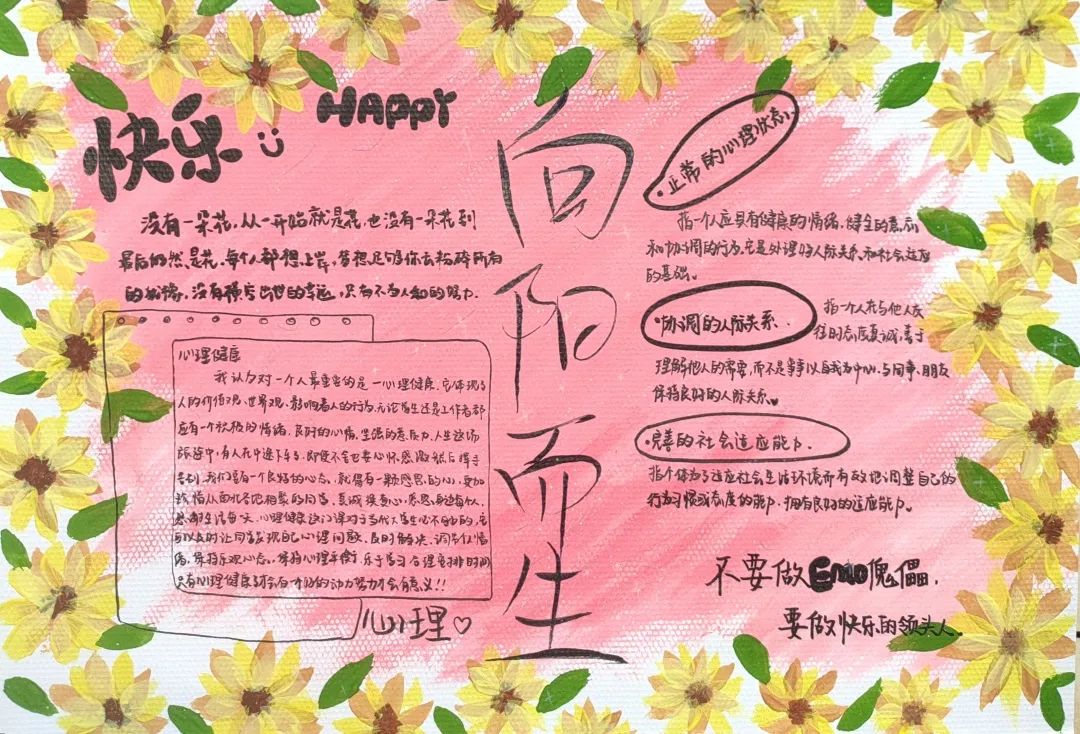 快乐
HAPPY
没有一朵花,从一开始就是花,也没有一朵花到
最后仍然是花.每个人都裎上岸,梦想足够你去粉碎所有
的犹豫,没有横空出世的幸运,只有不为人知的努力.
心理健康
我认为对一个人最重要的是一心理健康,它体现了
人的价值观、世界观,影响着人的行为,无论学生还是工作者都
应有一个积极的情绪,良好的心情,坚强的意志力,人生这场
旅途中,有人在中途下车,即使不舍也要心怀感激然后挥手
告别,我们要有一个良好的心态,就得有一颗感恩的心,更加
珍惜从四面各地相聚的同学,真诚换真心,感恩遇过每个人,
心理健康这门课对于当代大学生必不可少的,它
可以及时让同学发现自己心理问题,及时解决,调节好情
绪,保持乐观心态,保持心理平衡,乐于学习合理安排时间
只有心理健康了才会有才行的动力努力才会有意义!!
心理♡
向阳而生
·正常的心理状态.
指一个人应具有健康的情绪,健全的意志
和协调的行为,它是处理好人际关系和社会适应
的基础.
·协调的人际关系.
指一个人在与他人交
往时态度真诚,善于
理解他人的需要,而不是事事以自我为中心,与同事、朋友
保持良好的人际关系.♥
·完善的社会适应能力.
指个体为了适应社会生活环境而有效地调整自己的
行为习惯或态度的能力,拥有良好的适应能力.
不要做Emo傀儡,
要做快乐的领头人.